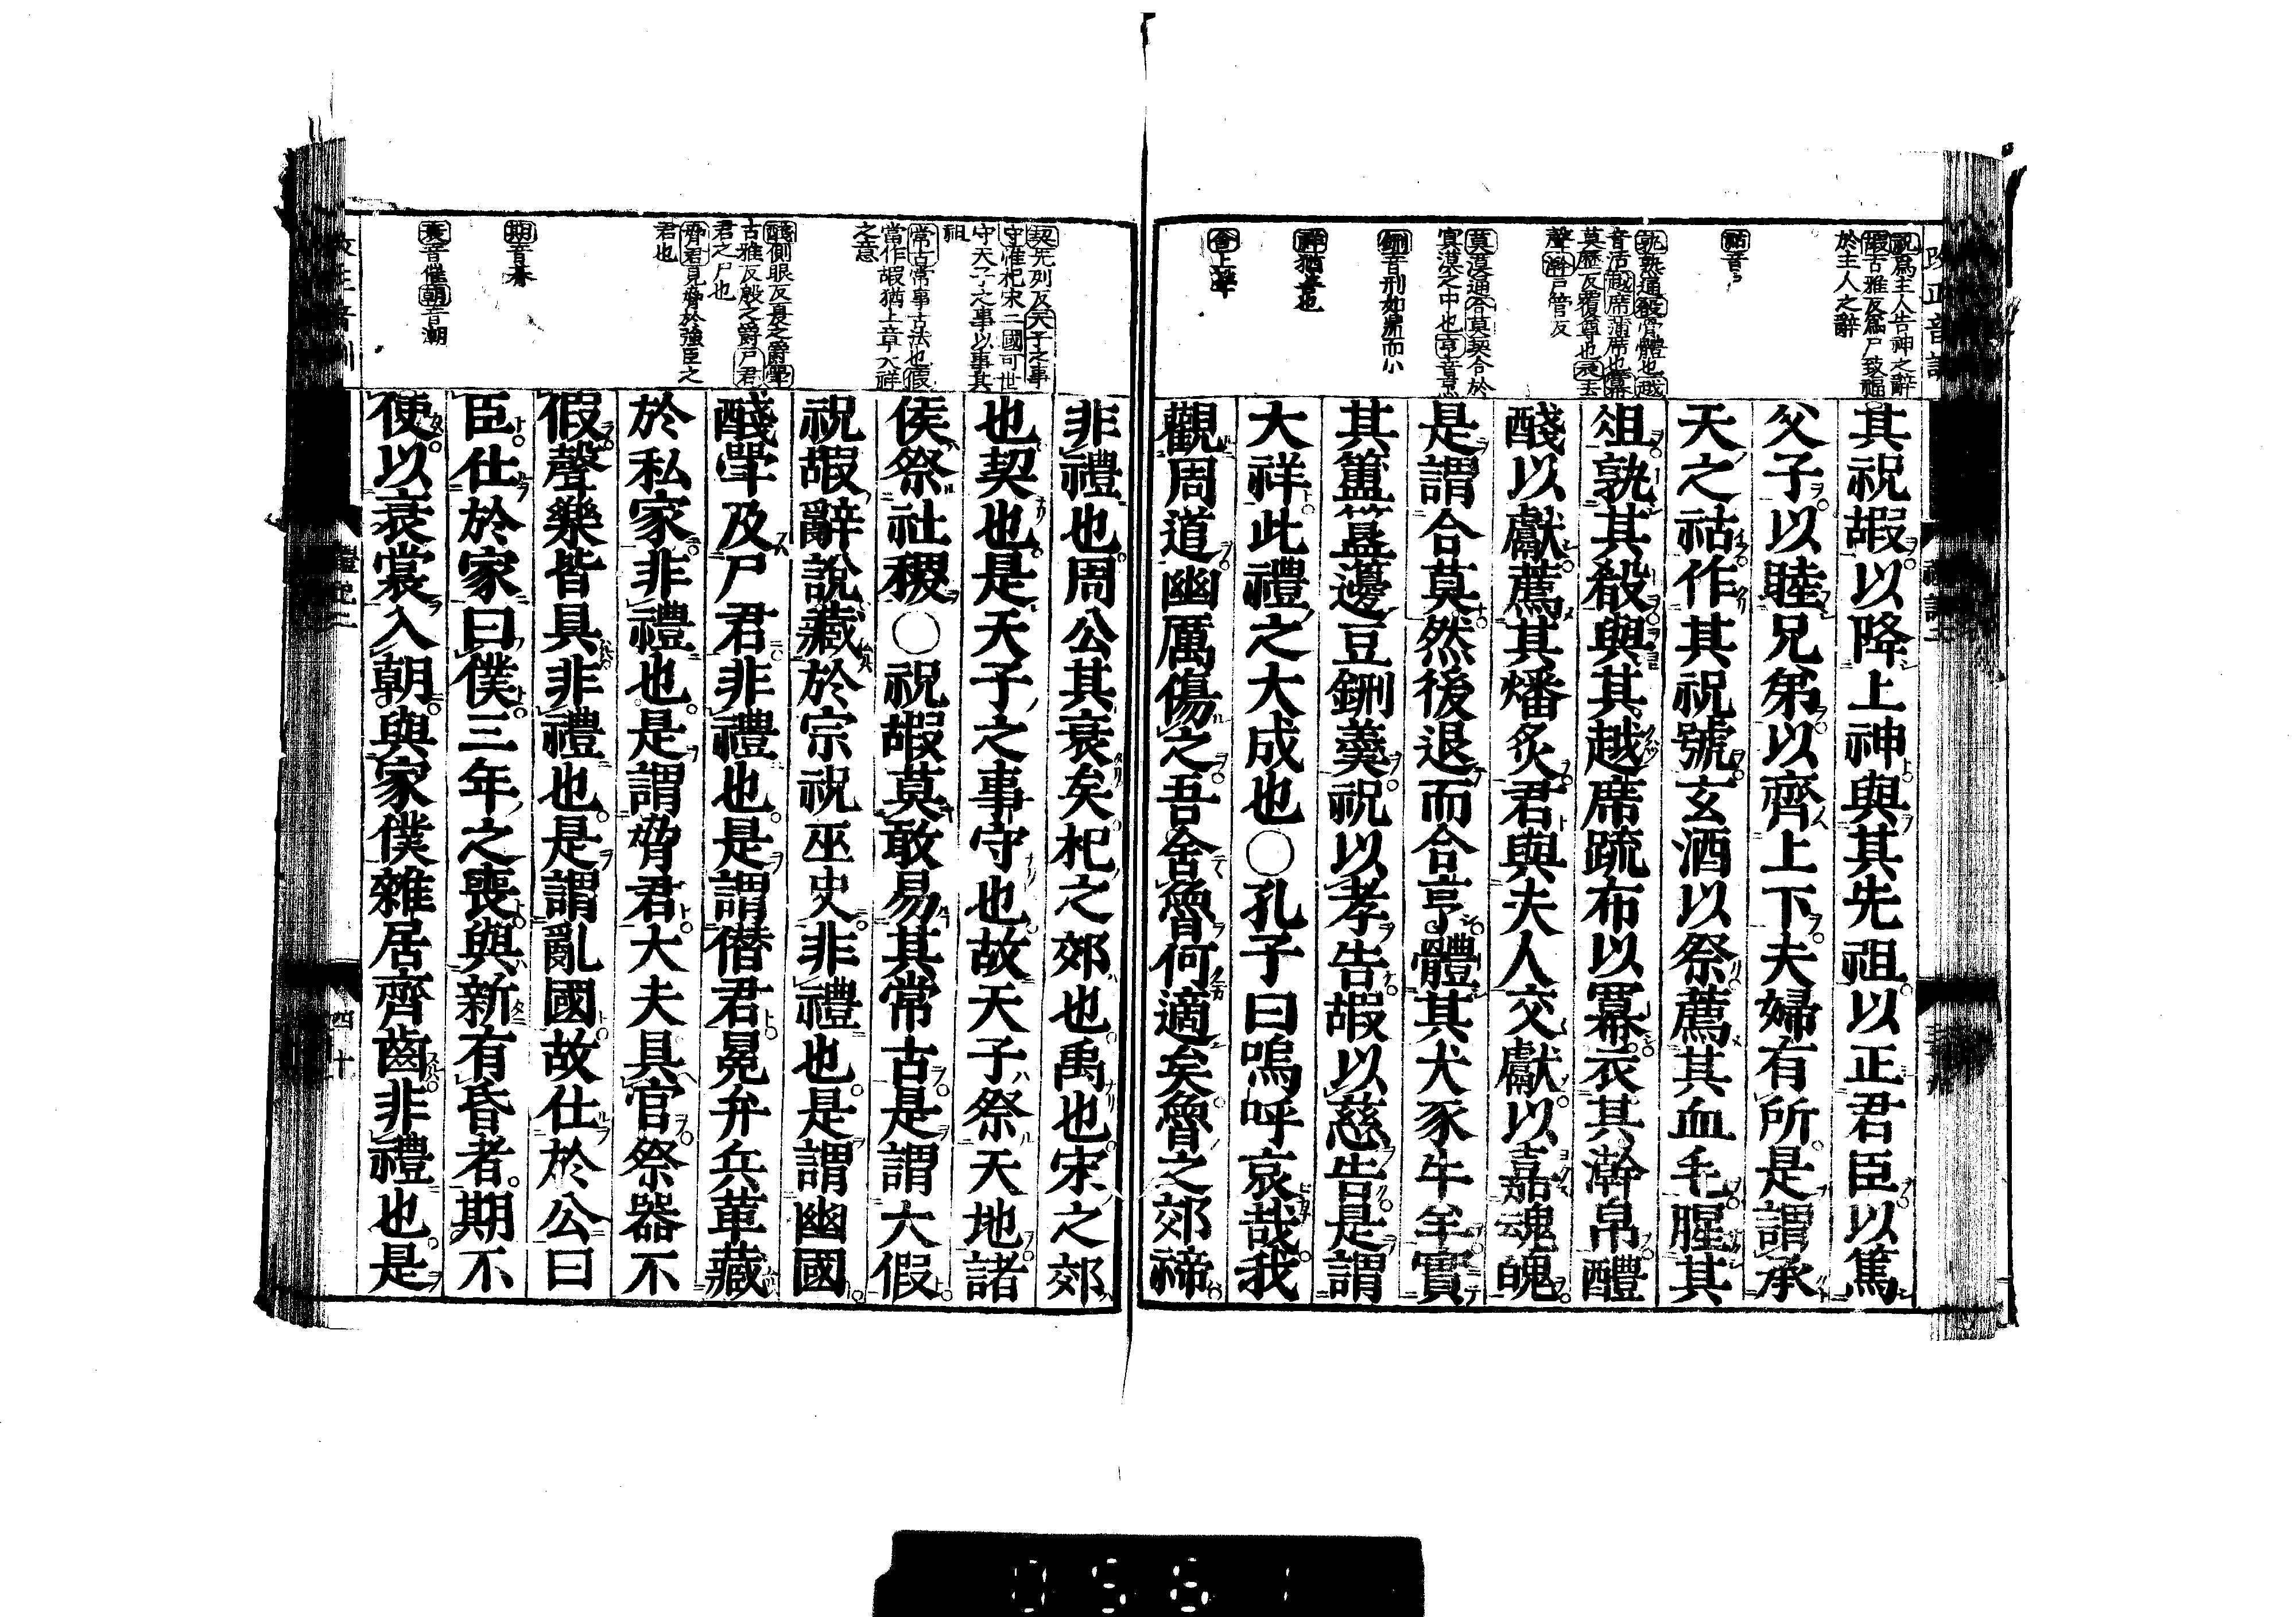 改正音訓
祝爲主人告神之辭
嘏古雅反爲尸致福
於主人之辭
祜音戶
孰熟通殽骨體也越
音活越席蒲席也冪
莫歷反覆尊也衣去
聲澣戶管反
莫漠通合莫契合於
冥漠之中也亨音烹
鉶音刑如鼎而小
祥猶善也
舍上聲
其祝嘏以降上神與其先祖以正君臣以篤
父子以睦兄弟以齊上下夫婦有所是謂承
天之祜作其祝號玄酒以祭薦其血毛腥其
俎孰其殽與其越席疏布以冪衣其澣帛醴
醆以獻薦其燔炙君與夫人交獻以嘉魂魄
是謂合莫然後退而合亨體其犬豕牛羊實
其簠簋籩豆鉶羹祝以孝告嘏以慈告是謂
大祥此禮之大成也○孔子曰嗚呼哀哉我
觀周道幽厲傷之吾舍魯何適矣魯之郊禘
契先列反天子之事
守惟杞宋二國可世
守天子之事以事其
祖
常古常事古法也假
當作嘏猶上章大祥
之意
醆側眼反夏之爵斝
古雅反殷之爵尸君
君之尸也
脅君見脅於強臣之
君也
期音朞
衰音催朝音潮
非禮也周公其衰矣杞之郊也禹也宋之郊
也契也是天子之事守也故天子祭天地諸
侯祭社稷○祝嘏莫敢易其常古是謂大假
祝嘏辭說藏於宗祝巫史非禮也是謂幽國
醆斝及尸君非禮也是謂僭君冕弁兵革藏
於私家非禮也是謂脅君大夫具官祭器不
假聲樂皆具非禮也是謂亂國故仕於公曰
臣仕於家曰僕三年之喪與新有昏者期不
使以衰裳入朝與家僕雜居齊齒非禮也是
禮記二
四十
0561